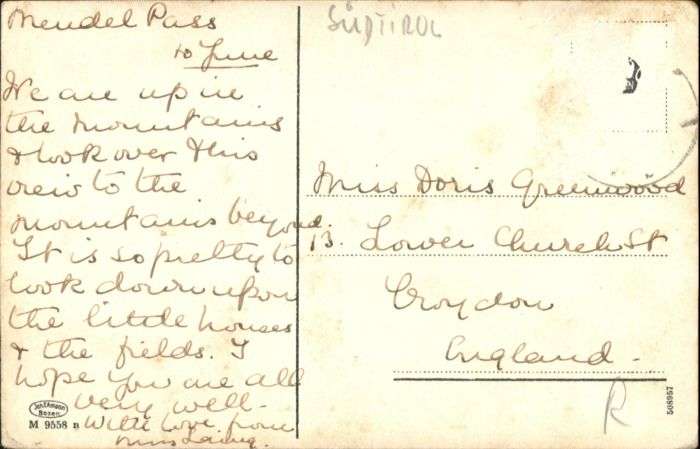 Mendel Pass
10 June
We are up in
the mountains
& look over this
view to the
mountains beyond.
It is so pretty to
look down upon
the little houses
& the fields. I
hope you are all
very well.
With love from
Miss
Joh. F. Amonn
Bozen
M 9558 B
SÜDTIROL
Miss Doris Greenwood
13. Lower Church St
Croydon
England.
R
568957